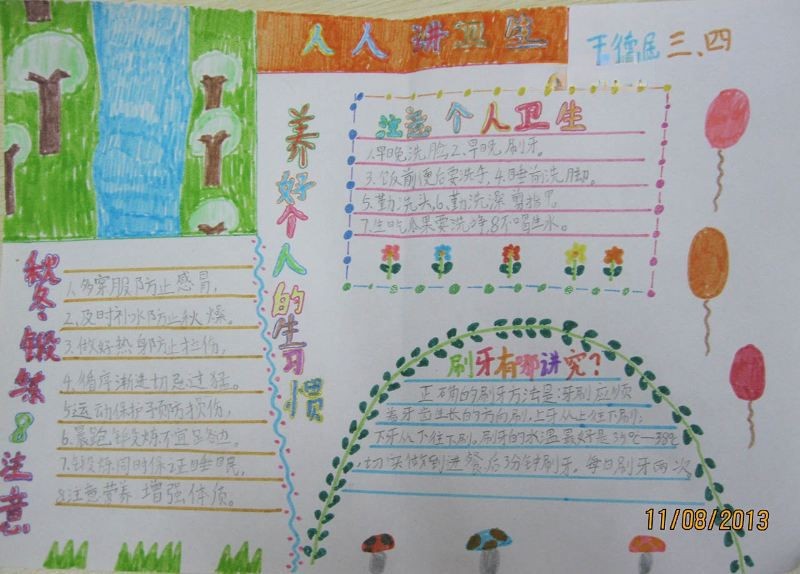 人人讲卫生
王德屈 三、四
养好个人的生习惯
注意个人卫生
1.早晚洗脸2、早晚刷牙。
3.饭前便后要洗手,4.睡前洗脚。
5.勤洗头,6.勤洗澡剪指甲
7.生吃瓜果要洗净,8不喝生水。
秋冬锻炼8注意
1、多穿服防止感冒,
2、及时补水防止秋燥。
3.做好热身防止拦伤,
4.循序渐进切忌过猛。
5运动保护预防损伤,
6.晨跑锻炼不宜
7.锻炼同时保证睡眠,
8.注意营养增强体质。
刷牙有哪讲究?
正确的刷牙方法是:牙刷应顺
着牙齿生长的方向刷,上牙从上往下刷;
下牙从下往下刷。刷牙的水温最好是35℃—38℃
,切实做到进餐后3分钟刷牙。每日刷牙两次
11/08/2013